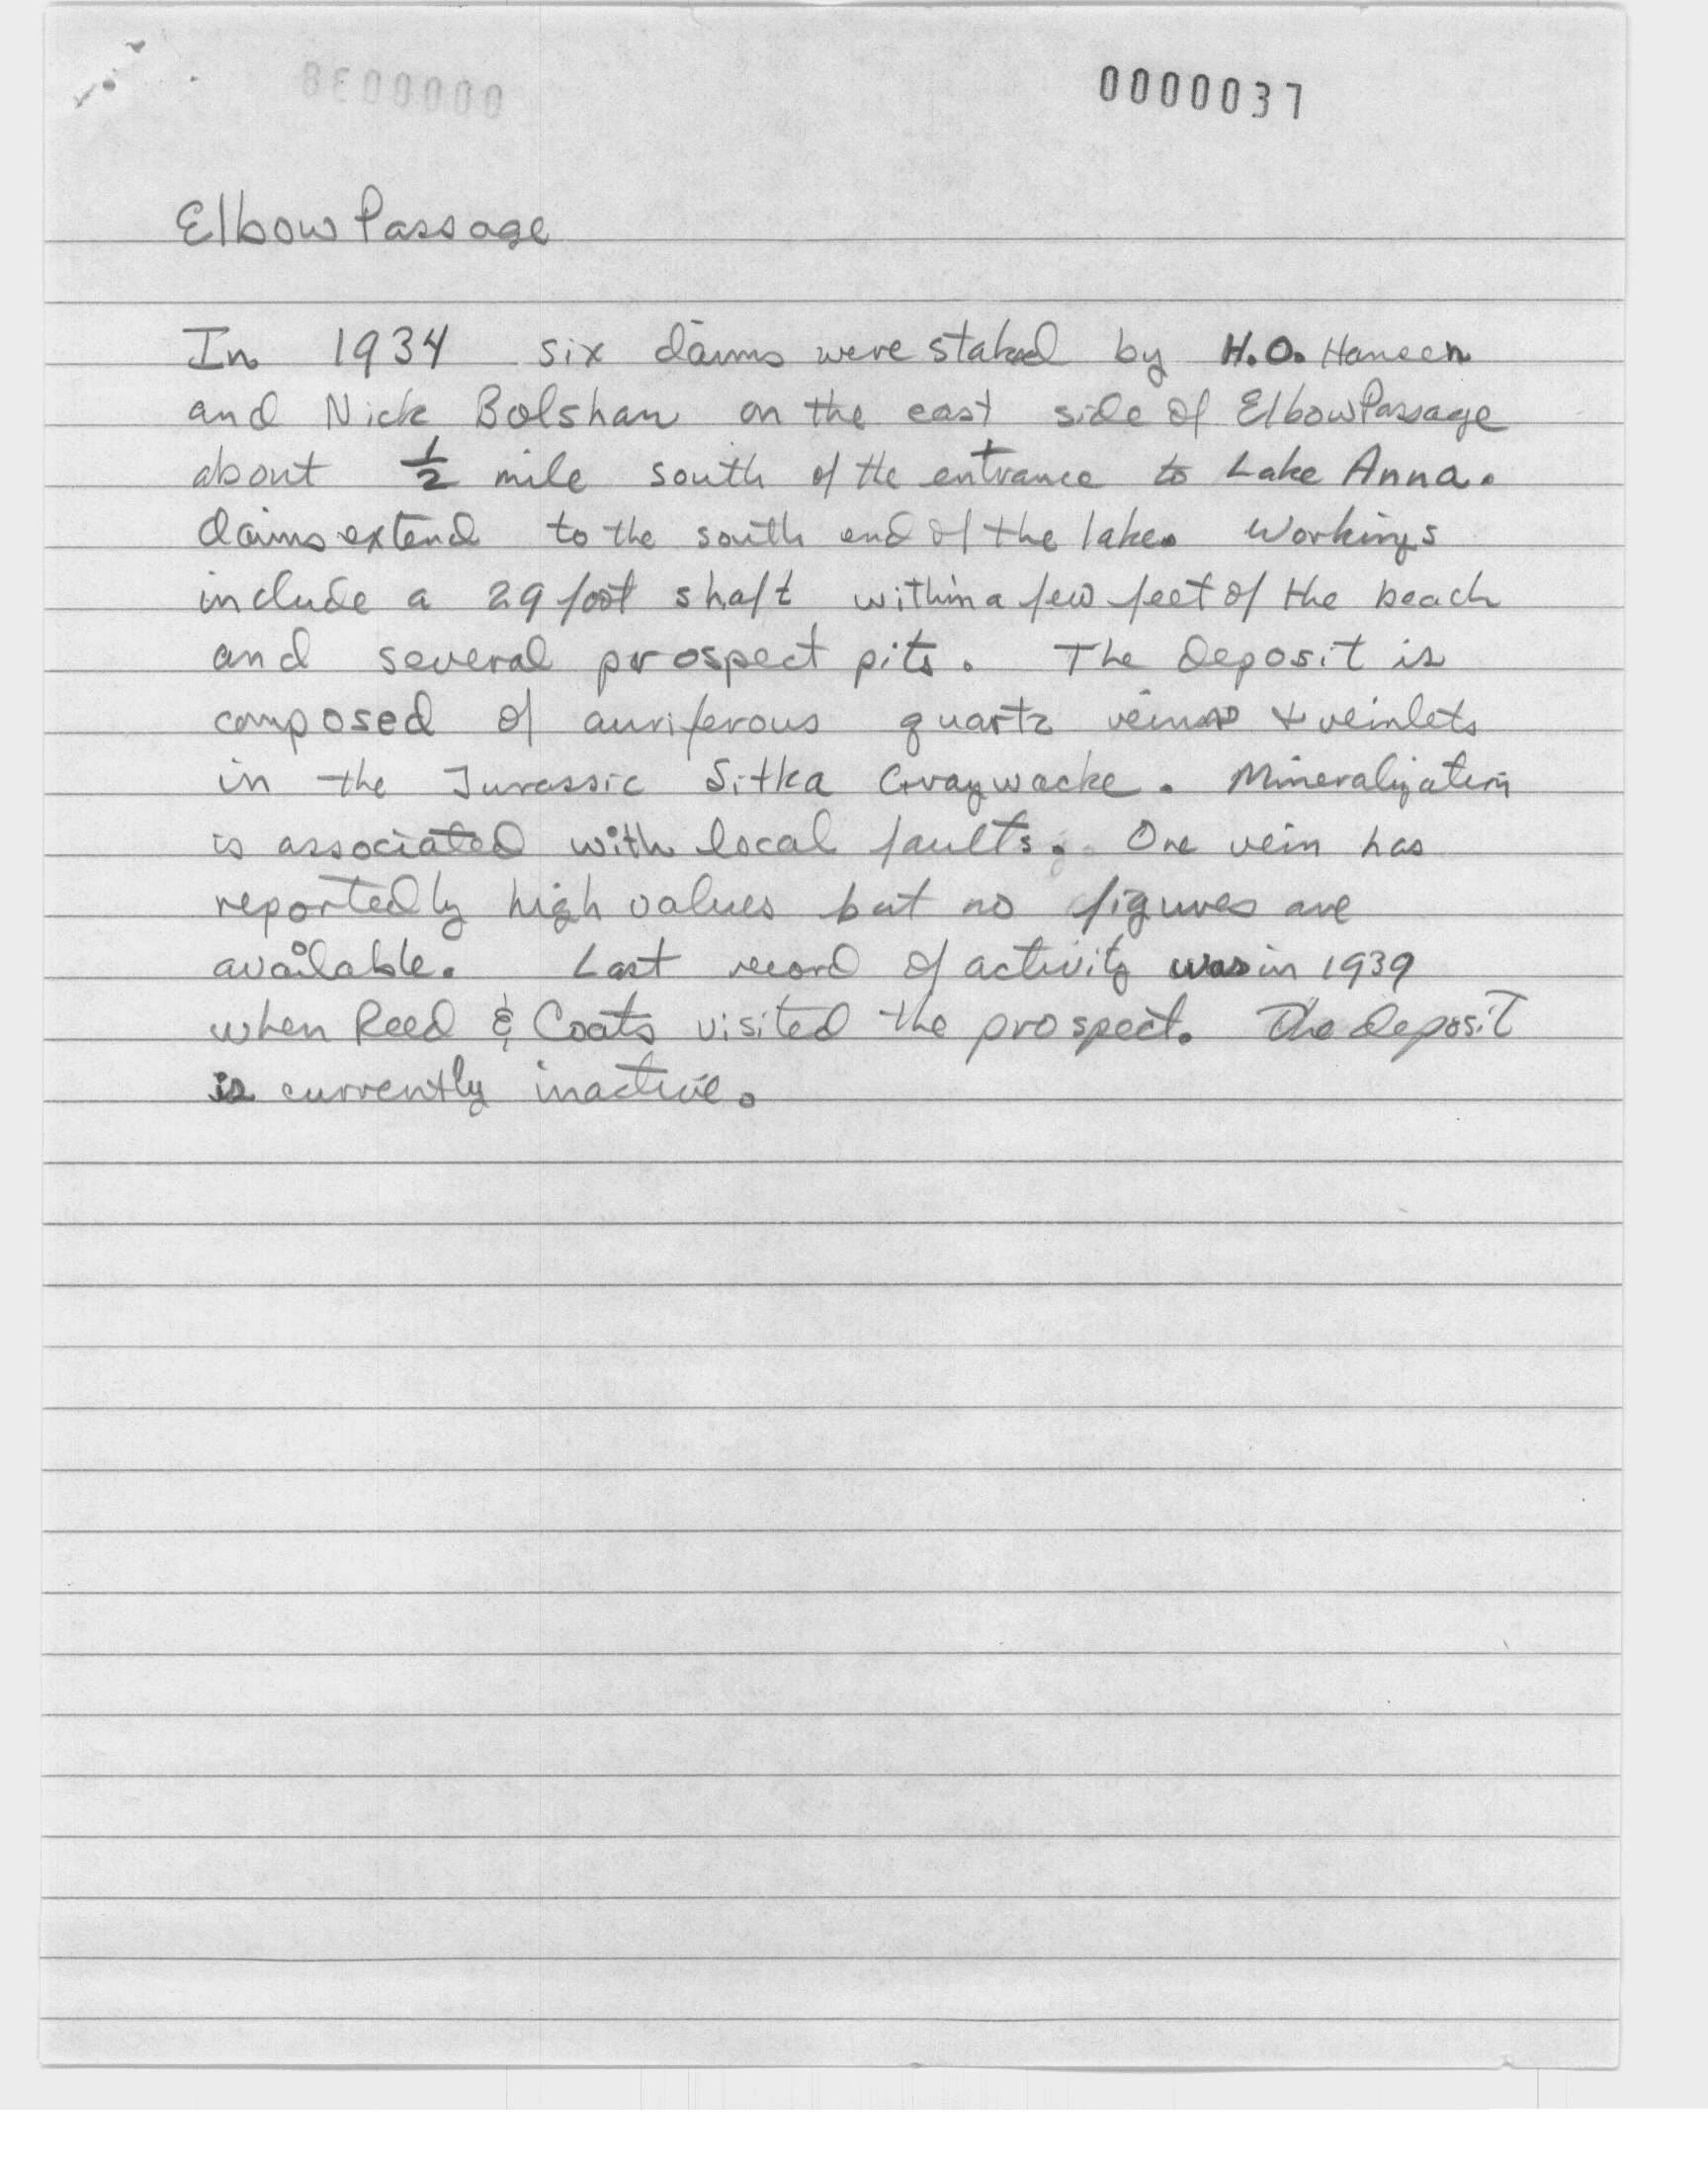 0000038
0000037
Elbow Passage
In 1934 six claims were staked by H.O. Hansen
and Nick Bolshan on the east side of Elbow Passage
about 1/2 mile south of the entrance to Lake Anna.
Claims extend to the south end of the lake. Workings
include a 29 foot shaft within a few feet of the beach
and several prospect pits. The deposit is
composed of auriferous quartz veins & veinlets
in the Jurassic Sitka Graywacke. Mineralization
is associated with local faults. One vein has
reportedly high values but no figures are
available. Last record of activity was in 1939
when Reed & Coats visited the prospect. The deposit
is currently inactive.